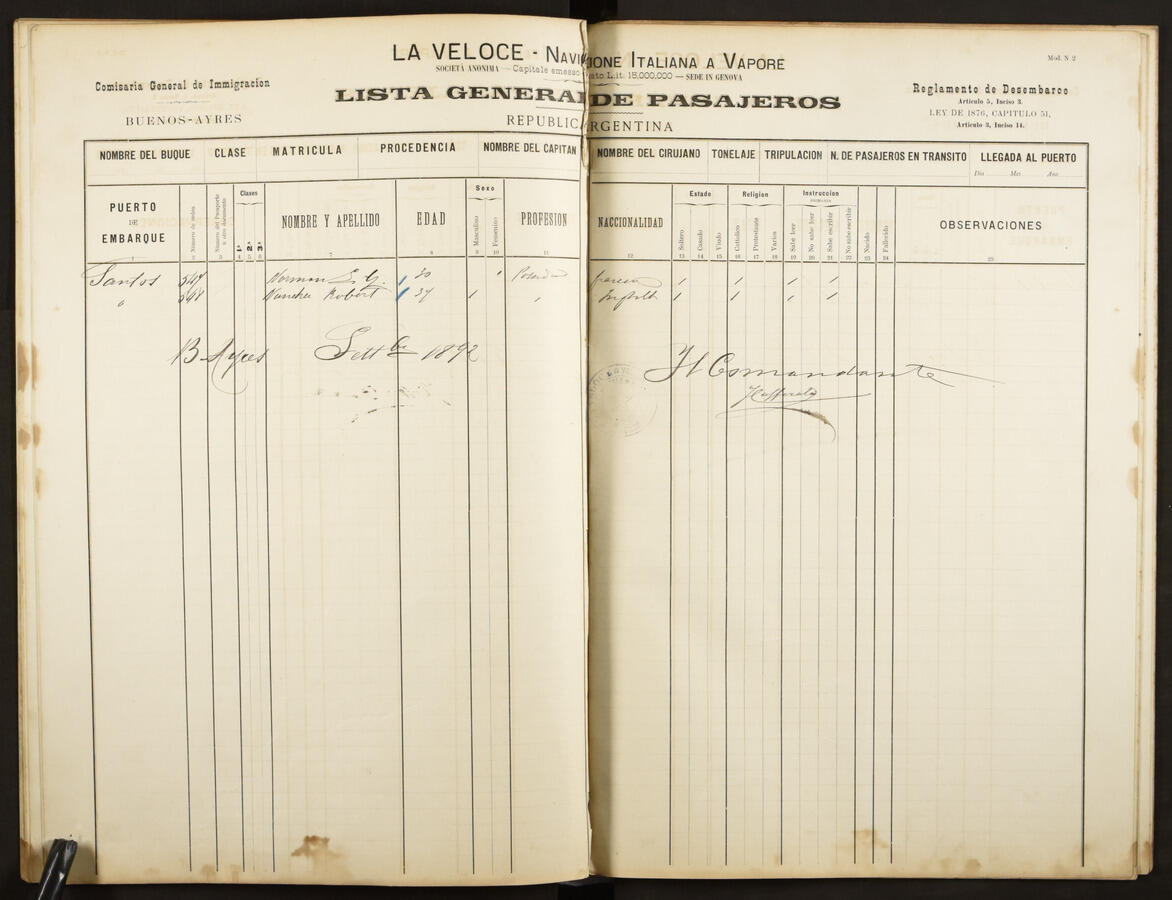 LA VELOCE - NAVI IONE ITALIANA A VAPORE
SOCIETÀ ANONIMA — Capitale emesso ato L.it. 15,000,000 — SEDE IN GENOVA
Mod. N 2
Comisaria General de Immigracion
BUENOS-AYRES
LISTA GENERAL DE PASAJEROS
REPUBLIC ARGENTINA
Reglamento de Desembarco
Articulo 5, Inciso 3.
LEY DE 1876, CAPITULO 51,
Articulo 3, Inciso 14.
NOMBRE DEL BUQUE CLASE MATRICULA PROCEDENCIA NOMBRE DEL CAPITAN NOMBRE DEL CIRUJANO TONELAJE TRIPULACION N. DE PASAJEROS EN TRANSITO LLEGADA AL PUERTO
Dia Mes Ano
PUERTO DE EMBARQUE
Número de orden
Número del Pasaporte ú otro documento
Clases
1ª 2ª 3ª
NOMBRE Y APELLIDO
EDAD
Sexo
Masculino
Femenino
PROFESION
NACCIONALIDAD
Estado
Soltero
Casado
Viudo
Religion
Catolico
Protestante
Varios
Instruccion
PRIMARIA
Sabe leer
No sabe leer
Sabe escribir
No sabe escribir
Nacido
Fallecido
OBSERVACIONES
1 2 3 4 5 6 7 8 9 10 11 12 13 14 15 16 17 18 19 20 21 22 23 24 25
Santos Norman 30
Robert 37
B Ayres Settbe 1892
Il Comandante